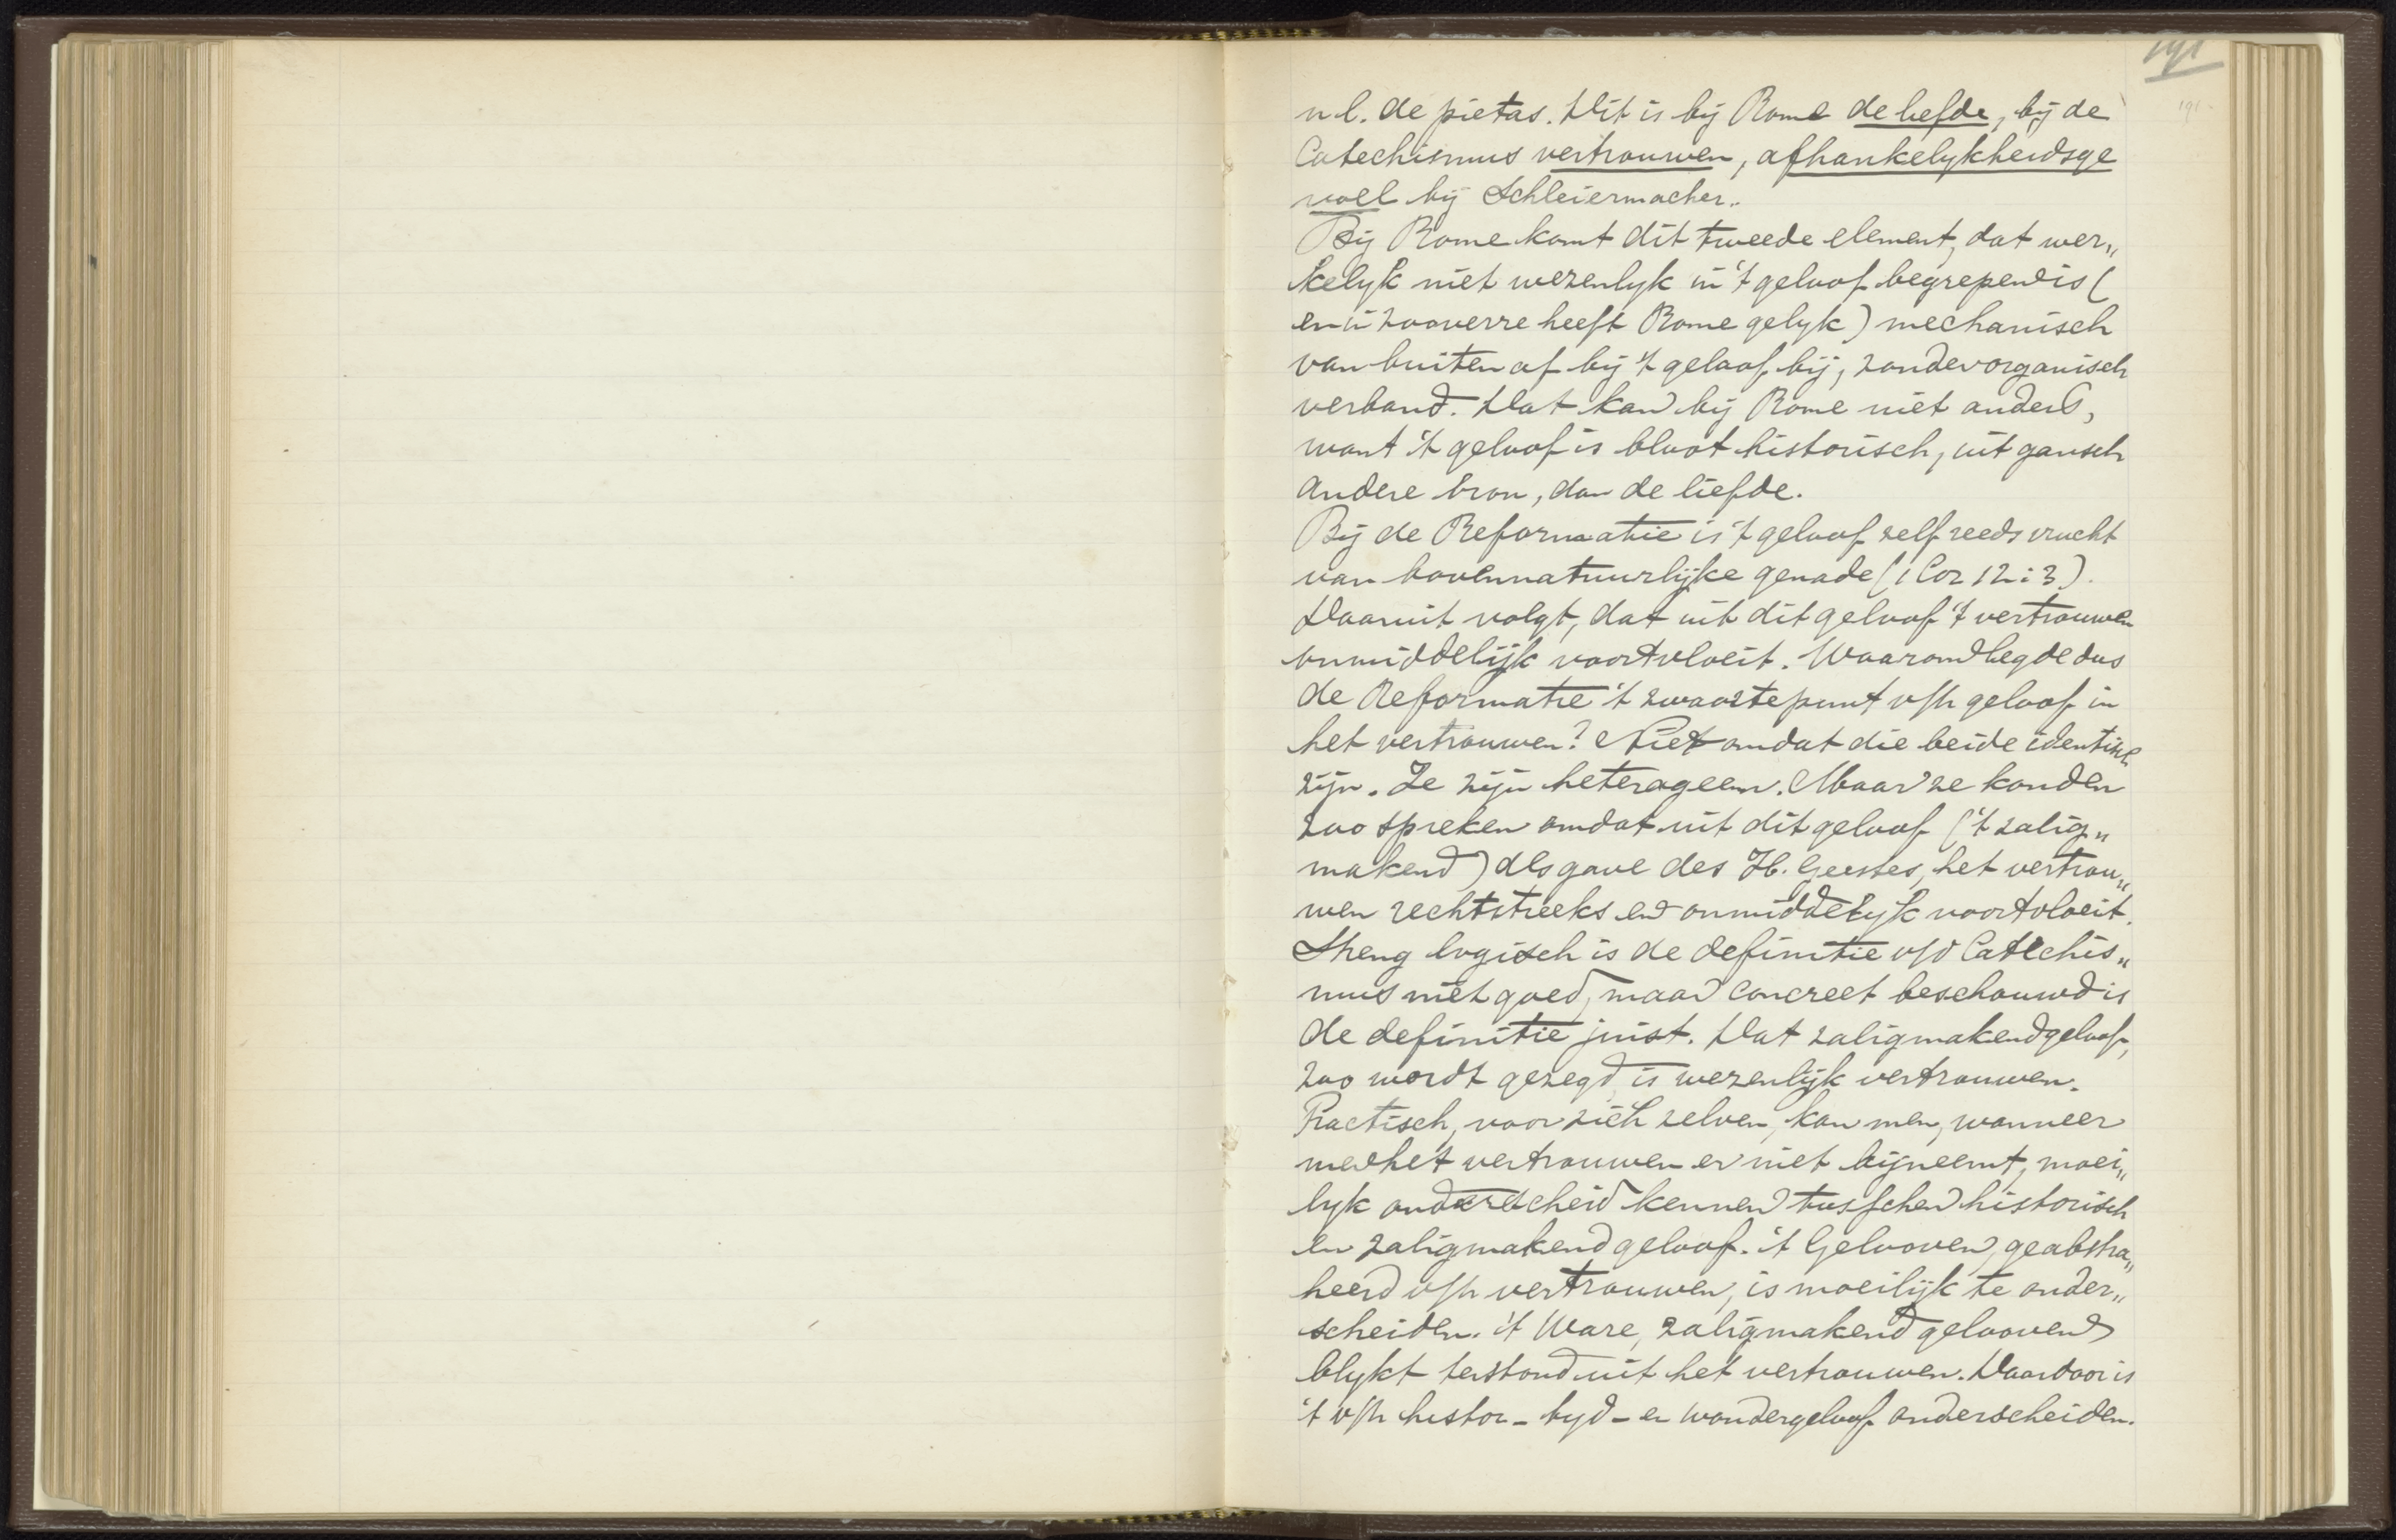 191
191
n.l. de piëtas. Dit is bij Rome de liefde, bij de
Catechismus vertrouwen, afhankelykheidsge
voel bij Schleiermacher.
Bij Rome komt dit tweede element, dat wer„
kelyk niet wezenlyk in 't geloof begrepen is (
en in zooverre heeft Rome gelyk) mechanisch
van buiten af bij 't geloof bij, zonder organisch
verband. Dat kan bij Rome niet anders,
want 't geloof is bloot historisch, uit gansch
andere bron, dan de liefde.
Bij de Reformatie is 't geloof zelf reeds vrucht
van bovennatuurlijke genade (1 Cor 12:3).
Daaruit volgt, dat uit dit geloof 't vertrouwen
onmiddelijk voortvloeit. Waarom legde dus
de Reformatie 't zwaartepunt v/h geloof in
het vertrouwen? Niet omdat die beide identisch
zijn. Ze zijn heterogeen. Maar ze konden
zoo spreken omdat uit dit geloof ('t zalig„
makend) als gave des H. Geestes, het vertrou„
wen rechtstreeks en onmiddelyk voortvloeit.
Streng logisch is de definitie v/d Catechis„
mus niet goed, maar concreet beschouwd is
de definitie juist. Dat zaligmakend geloof,
zoo wordt gezegd, is wezenlijk vertrouwen.
Practisch, voor zich zelven, kan men, wanneer
men het vertrouwen er niet bijneemt, moei„
lyk onderscheid kennen tusschen historisch
en zaligmakend geloof. 't Gelooven, geabstra„
heerd v/h vertrouwen, is moeilijk te onder„
scheiden. 't Ware, zaligmakend gelooven
blykt terstond uit het vertrouwen. Daardoor is
't v/h histor- tyd- en wondergeloof onderscheiden.